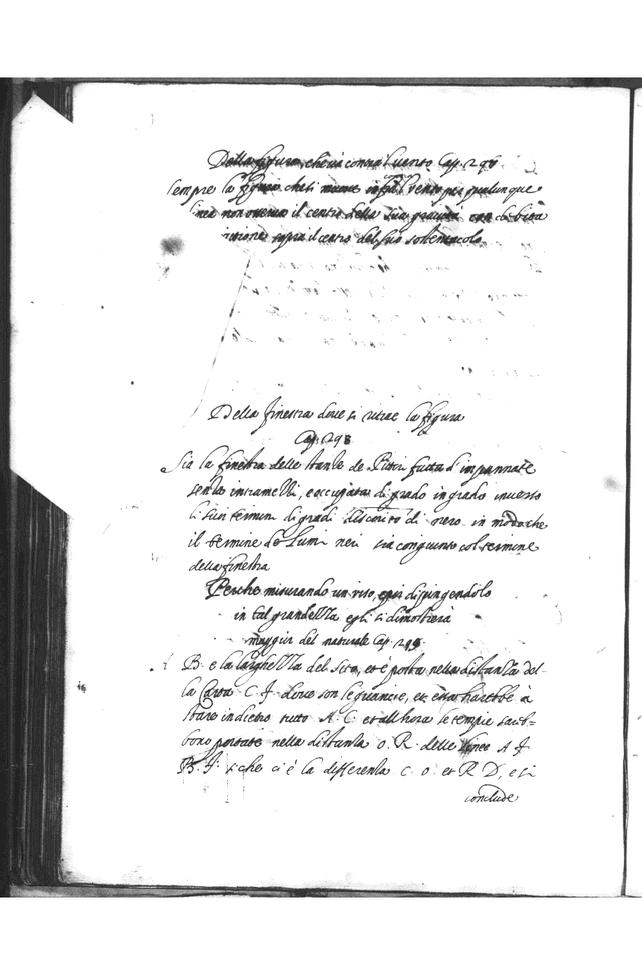 Della figura, che và contra l uento Cap. 297
sempre la figura che si muoue infra l vento per qualunque
linea non osserua il centro della sua grauità con debita
sopra il centro del suo sostentacolo
Della finestra doue si ritrae la figura
Cap. 298
Sia la finestra delle stanze de Pittori fatta d'impannate
senza intramezzi, e occupata di grado in grado inuerso
li suoi termini di gradi di scurito di nero in modo che
il termine de lumi non sia congiunto col termine
della finestra
Perche misurando un viso, e poi dipingendolo
in tal grandezza egli si dimostrerà
maggior del naturale Cap. 299
A B. e la larghezza del sito, et è posta nella distanza del-
la Carta C. F. doue son le guancie, et essa harebbe à
stare indietro tutto A. C. et all'hora le tempie sareb-
bono portate nella distanza O. R. delle linee A. F.
B. F. siche ci è la differenza C. O. et R D, e si
conclude